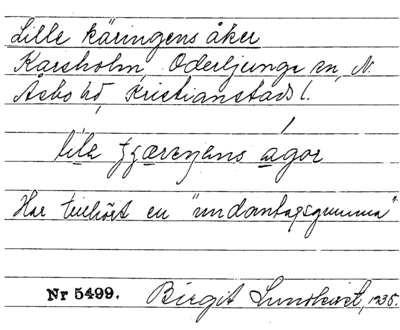 Lille käringens åker
Karsholm, Oderljunga sn, N.
Åsbo hd, Kristianstads l.
lilla
ågor
Har tillhört en "undantagsgumma".
Nr 5499. Birgit Lundkvist, 1935.